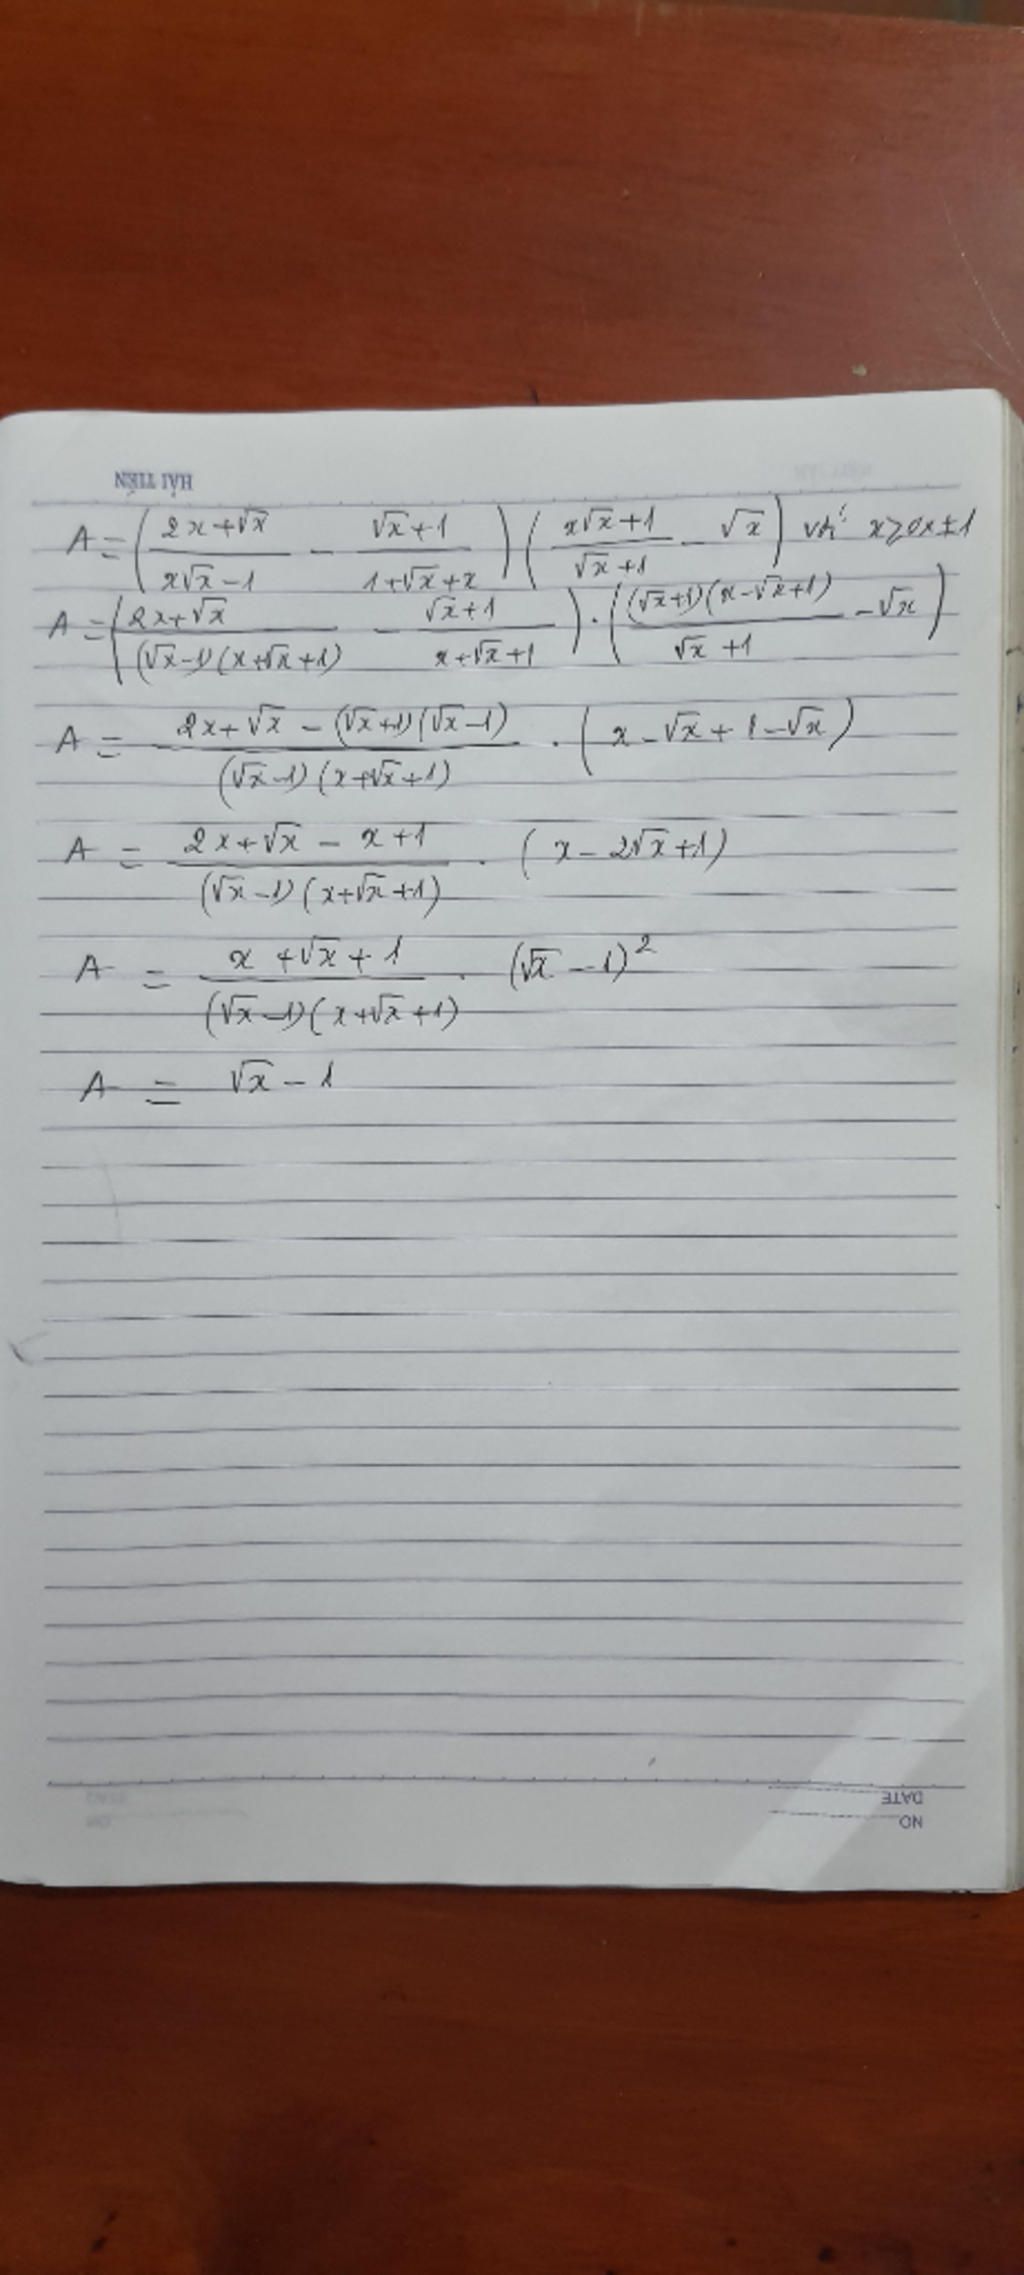 HẢI TIẾN
A = ( (2x+√x)/(x√x−1) − (√x+1)/(1+√x+x) ) ( (x√x+1)/(√x+1) − √x ) với x≥0 x≠1
A = ( (2x+√x)/((√x−1)(x+√x+1)) − (√x+1)/(x+√x+1) ) . ( ((√x+1)(x−√x+1))/(√x+1) − √x )
A = (2x+√x − (√x+1)(√x−1))/((√x−1)(x+√x+1)) . ( x−√x+1−√x )
A = (2x+√x − x+1)/((√x−1)(x+√x+1)) . ( x−2√x+1 )
A = (x+√x+1)/((√x−1)(x+√x+1)) . (√x−1)²
A = √x−1
DATE
NO